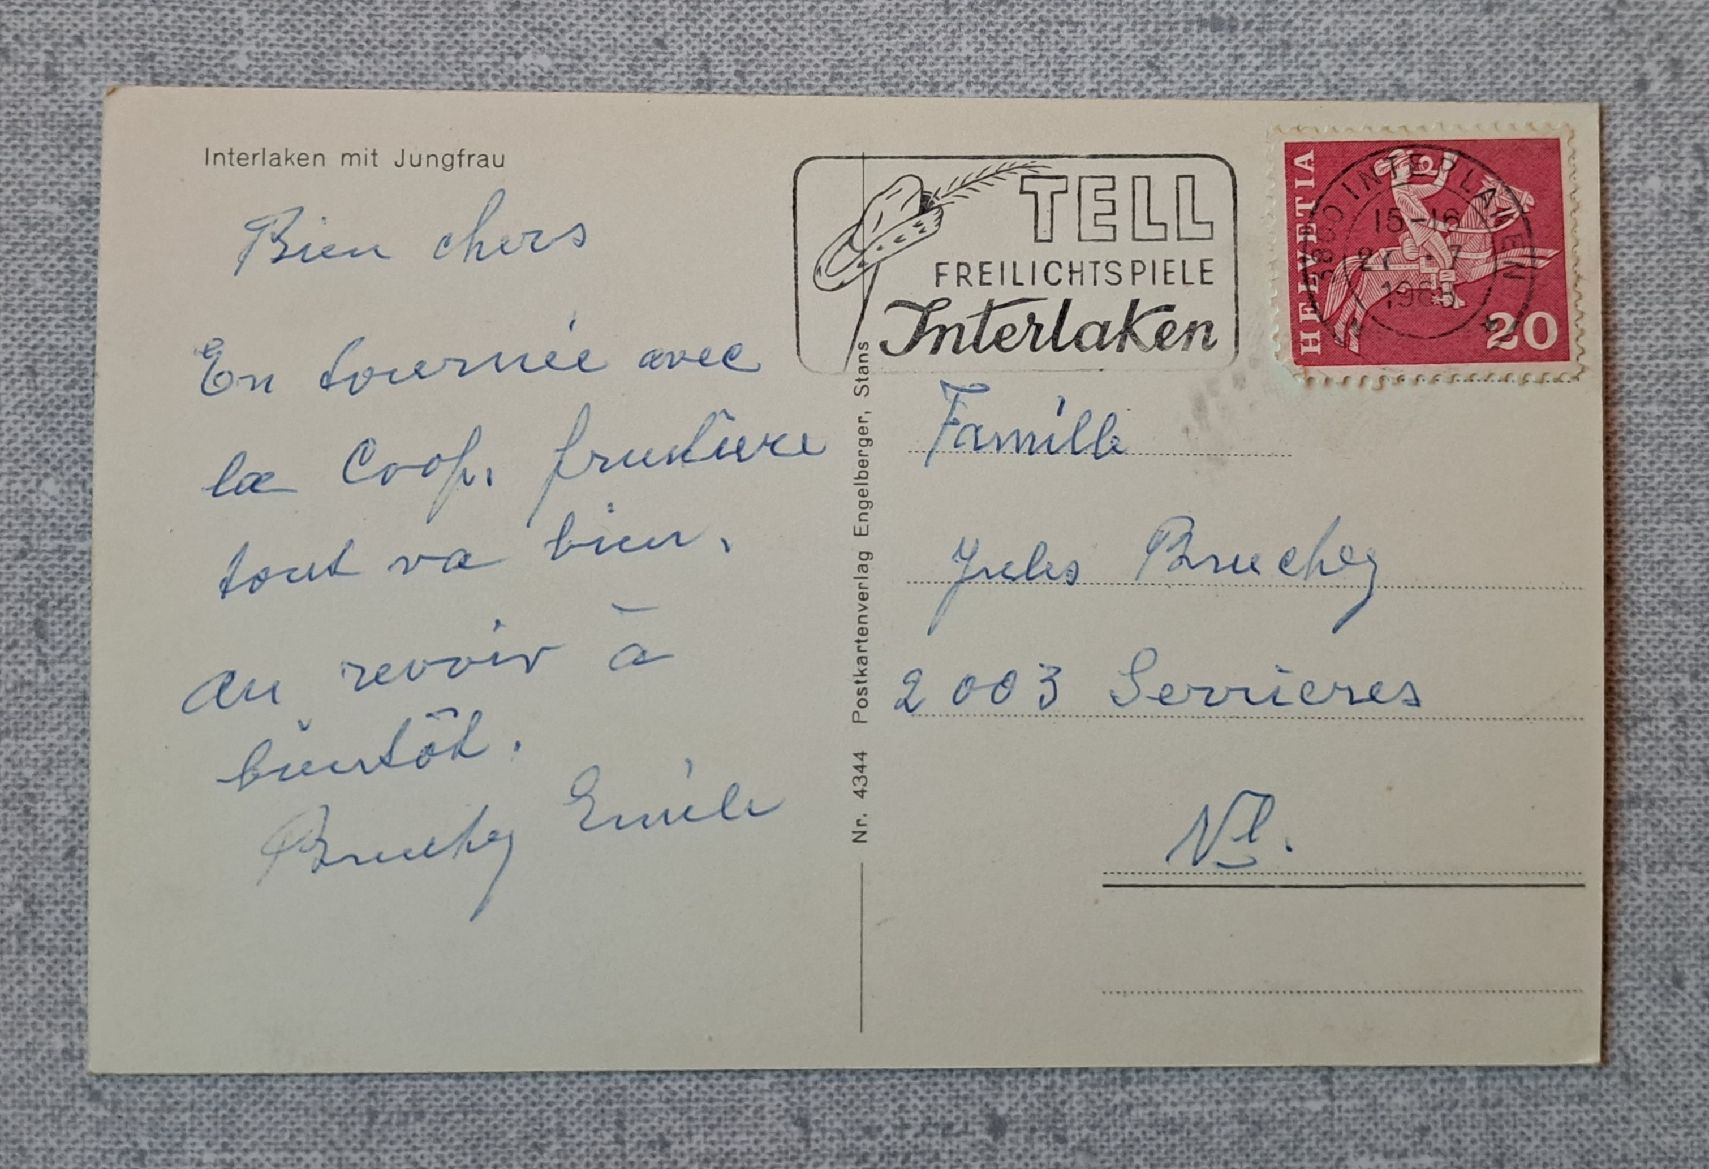 Interlaken mit Jungfrau
Bien chers
En tournée avec
la Coop. fruitière
tout va bien.
Au revoir à
bientôt.
Bruchez Emile
Nr. 4344 Postkartenverlag Engelberger, Stans
TELL
FREILICHTSPIELE
Interlaken
HELVETIA
20
3800 INTERLAKEN
15-16
27
7
Famille
Jules Bruchez
2003 Serrières